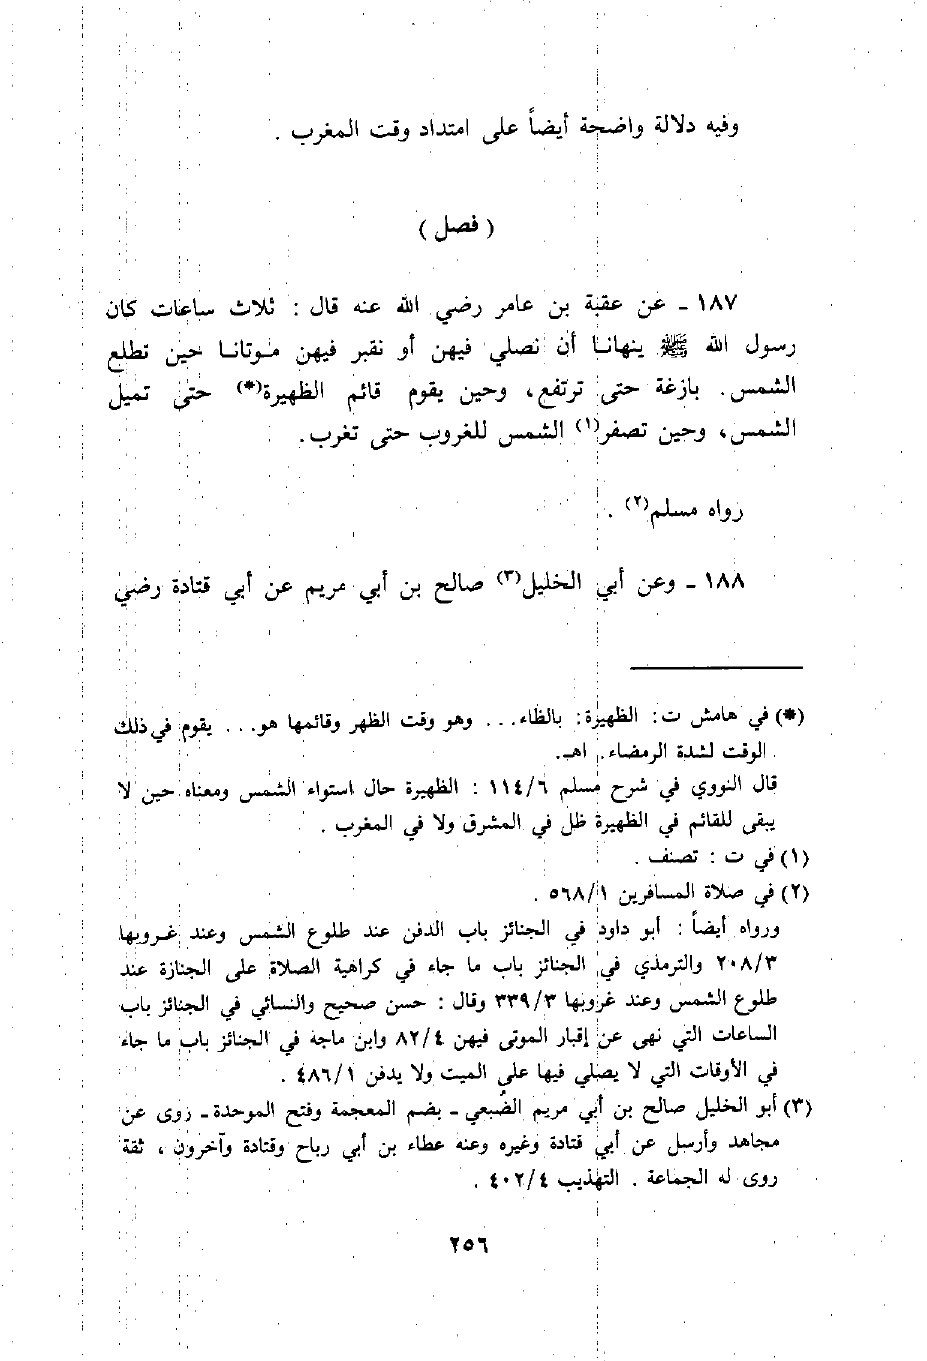 وفيه دلالة واضحة أيضاً على امتداد وقت المغرب .
( فصل )
١٨٧ - عن عقبة بن عامر رضي الله عنه قال : ثلاث ساعات كان
رسول الله ﷺ ينهانا أن نصلي فيهن أو نقبر فيهن موتانا حين تطلع
الشمس. بازغة حتى ترتفع، وحين يقوم قائم الظهيرة(*) حتى تميل
الشمس، وحين تصفر(١) الشمس للغروب حتى تغرب.
رواه مسلم(٢) .
١٨٨ - وعن أبي الخليل(٣) صالح بن أبي مريم عن أبي قتادة رضي
(*) في هامش ت: الظهيرة: بالظاء... وهو وقت الظهر وقائمها هو... يقوم في ذلك
الوقت لشدة الرمضاء. اهـ.
قال النووي في شرح مسلم ١١٤/٦ : الظهيرة حال استواء الشمس ومعناه حين لا
يبقى للقائم في الظهيرة ظل في المشرق ولا في المغرب .
(١) في ت : تصنف .
(٢) في صلاة المسافرين ٥٦٨/١ .
ورواه أيضاً : أبو داود في الجنائز باب الدفن عند طلوع الشمس وعند غروبها
٢٠٨/٣ والترمذي في الجنائز باب ما جاء في كراهية الصلاة على الجنازة عند
طلوع الشمس وعند غروبها ٣٣٩/٣ وقال : حسن صحيح والنسائي في الجنائز باب
الساعات التي نهى عن إقبار الموتى فيهن ٨٢/٤ وابن ماجه في الجنائز باب ما جاء
في الأوقات التي لا يصلي فيها على الميت ولا يدفن ٤٨٦/١ .
(٣) أبو الخليل صالح بن أبي مريم الضُبعي - بضم المعجمة وفتح الموحدة - روى عن
مجاهد وأرسل عن أبي قتادة وغيره وعنه عطاء بن أبي رباح وقتادة وآخرون ، ثقة
روى له الجماعة . التهذيب ٤٠٢/٤ .
٢٥٦